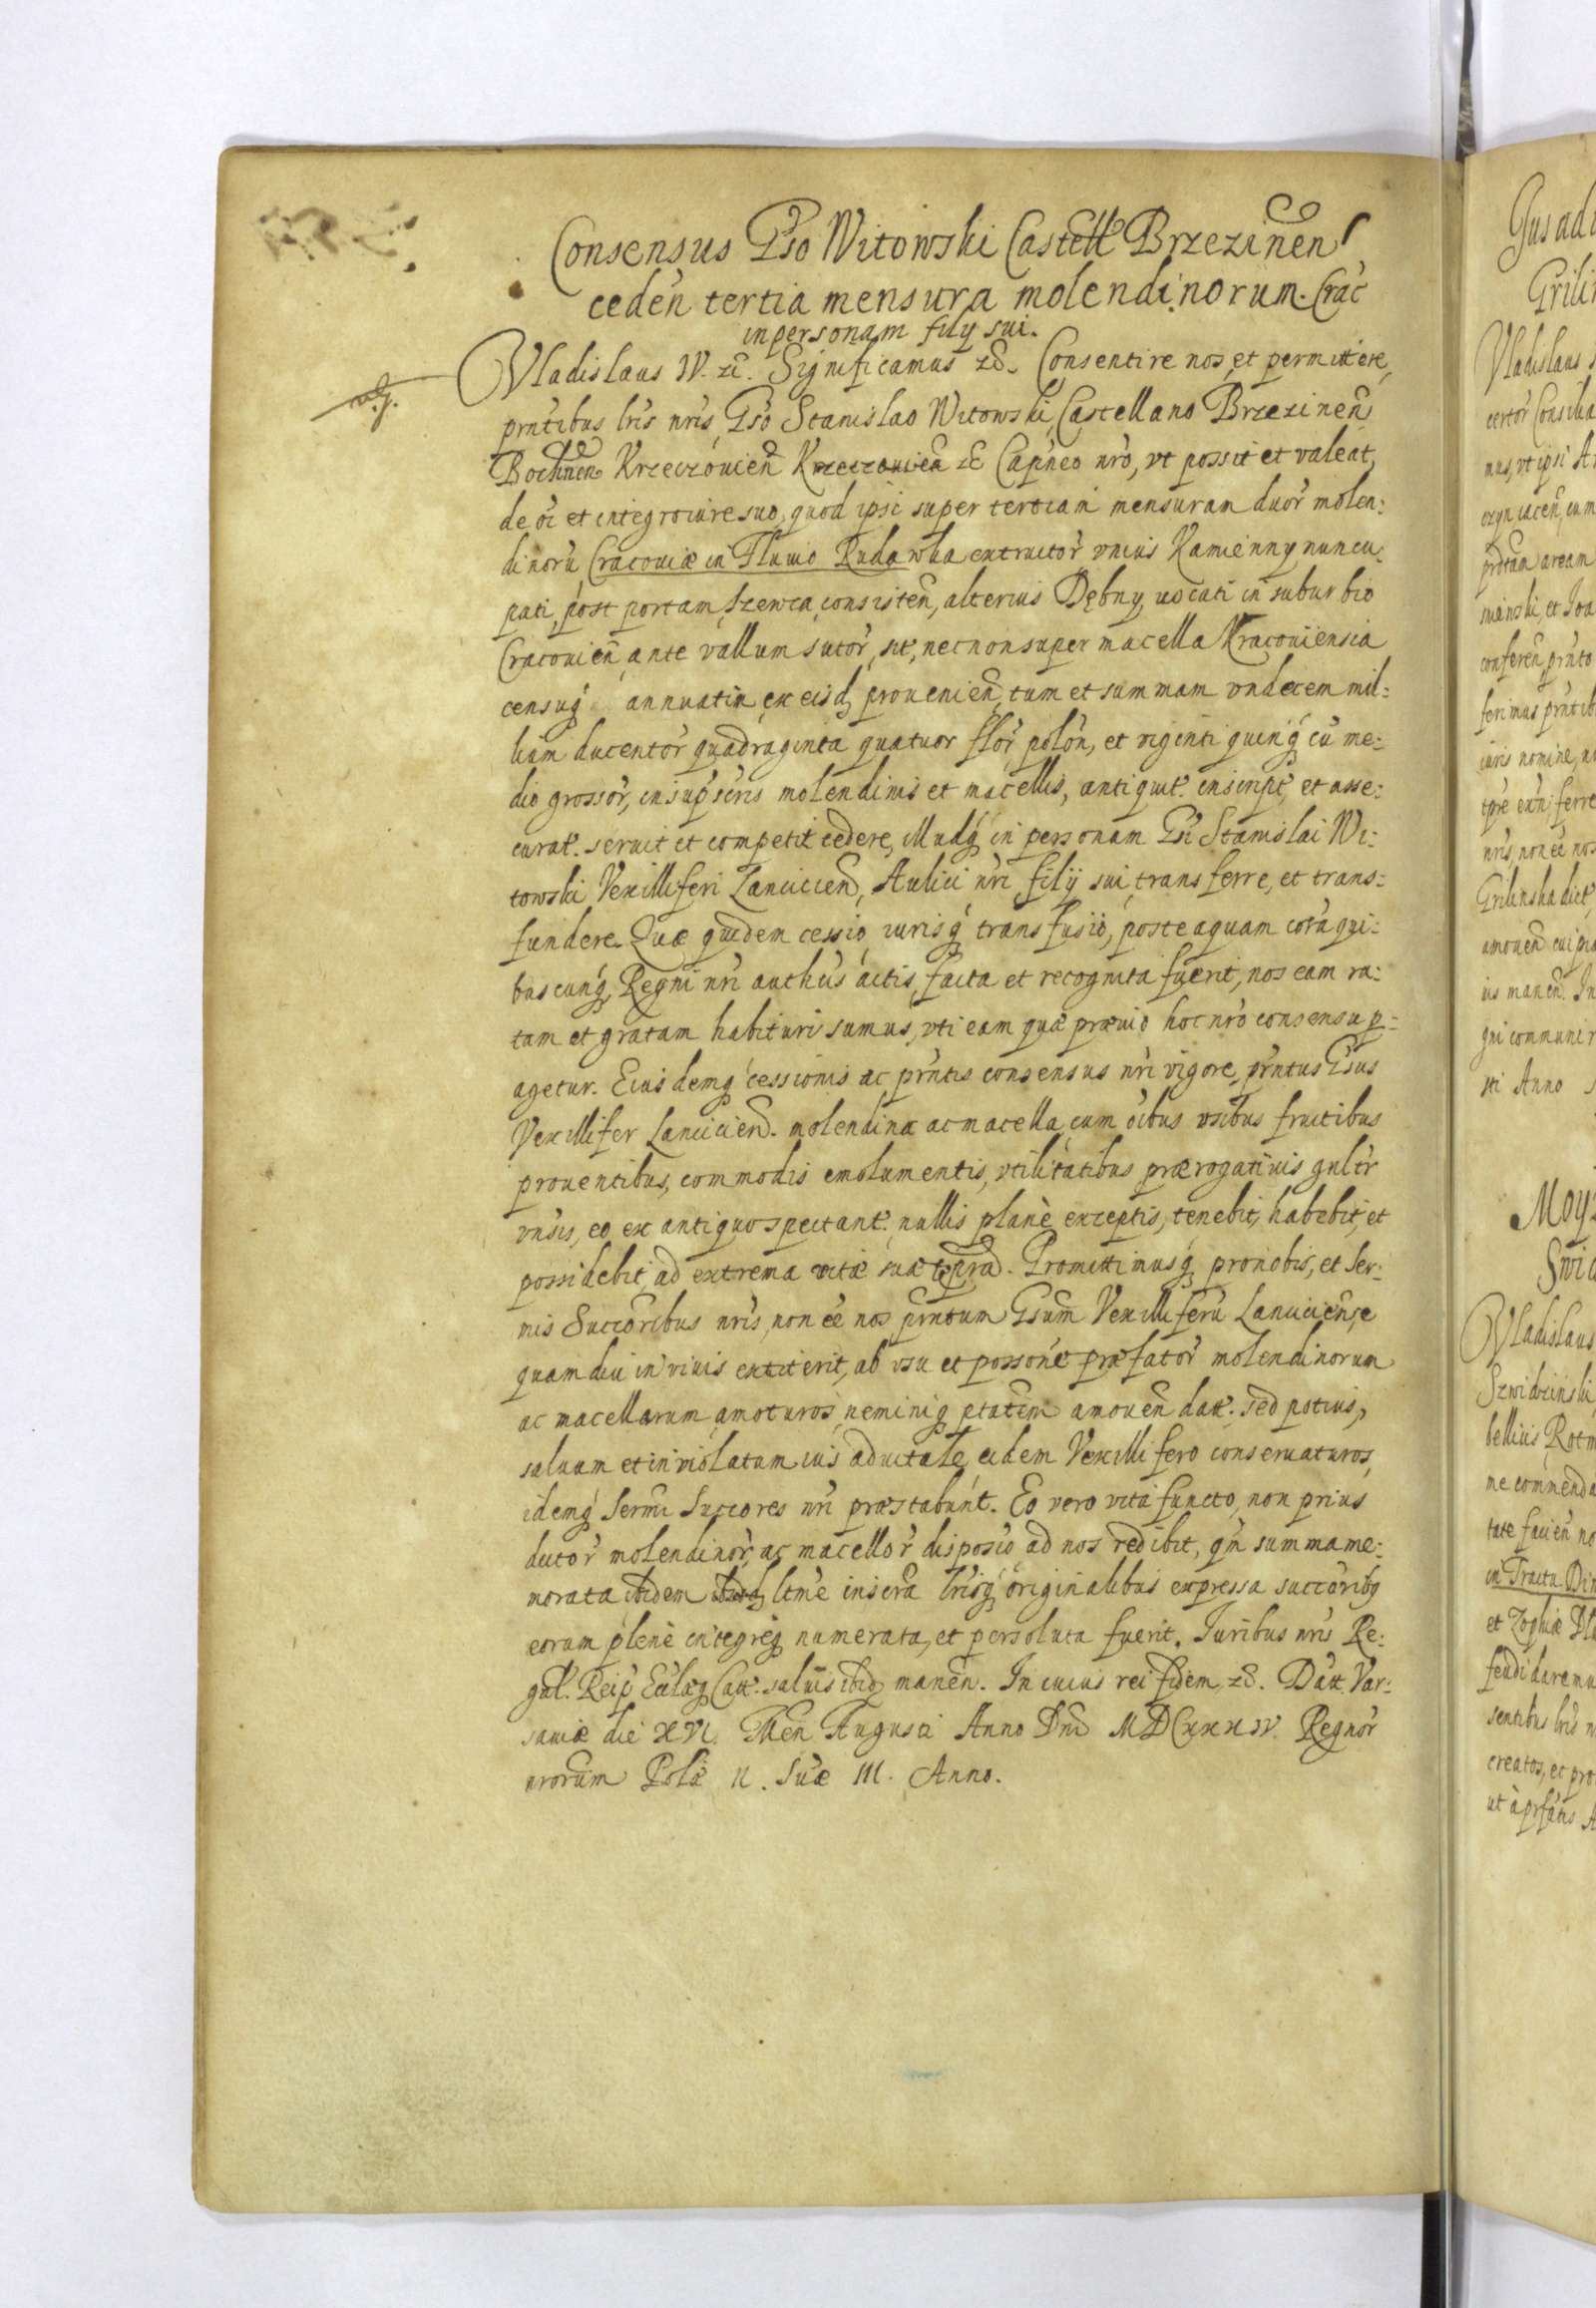 Consensus Gso Witowski Castell Brzezinen
ceden tertia mensura molendinorum Crac
in personam filij sui.
Vladislaus IV. zc. Significamus zc. Consentire nos et permittere,
prntibus lris nris, Gso Stanislao Witowski, Castellano Brzezinen
Bochnen Krzeczouien Krzeczouien zc Capneo nro, vt possit et valeat,
de oi et integro iure suo, quod ipsi super tertiam mensuram duor molen:
dinoru Cracouiæ in Fluuio Rudawka extructor vnius Kamienny nuncu:
pati, post portam Szewca consisten, alterius Dębny, uocati in suburbio
Cracouien ante vallum sutor, sit, necnon super macella Kracouiensia
censuq annuatim ex eisd prouenien, tum et summam vndecem mil:
lium ducentor quadraginta quatuor flor polon, et viginti quinq cu me:
dio grossor, in sup scris molendinis et macellis, antiquit. inscript, et asse:
curat. seruit et competit cedere, illudq in personam Gsi Stanislai Wi:
towski Vexilliferi Lancicien, Aulici nri filij sui transferre, et trans:
fundere. Quæ quidem cessio iurisq transfusio, posteaquam cora qui:
buscunq Regni nri authcis actis, facta et recognita fuerit, nos eam ra:
tam et gratam habituri sumus, vti eam quæ præuio hoc nro consensu p:
agetur. Eiusdemq cessionis ac prntis consensus nri vigore, prntus Gsus
Vexillifer Lancicien. molendina ac macella, cum oibus vsibus fructibus
prouentibus, commodis emolumentis, vtilitatibus prærogatiuis gnltr
vnsis, eo ex antiquo spectant. nullis planè exceptis, tenebit, habebit, et
possidebit, ad extrema vitæ suæ tpra. Promittimusq pro nobis, et Ser:
mis Succoribus nris, non ee nos prntum Gsum Vexilliferu Lanciciense
quamdiu in viuis extiterit, ab vsu et possone præfator molendinorum
ac macellorum amoturos, neminiq ptatem amouen datt. sed potius,
saluum et inviolatum ius aduitale, eidem Vexillifero conseruaturos,
idemq Sermi Succores nri præstabunt. Eo vero vita functo, non prius
dictor molendinor, ac macellor disposio ad nos redibit, qn summa me:
morata ibidem ltme inscra lrisq originalibus expressa succoribq
eorum plenè integreq numerata, et persoluta fuerit. Iuribus nris Re:
gal. Reip Ecclæq Catt. saluis ibidq manen. In cuius rei fidem, zc. Datt. Var:
sauiæ die XVI. Men Augusti Anno Dni MDCXXXIV. Regnor
nrorum Polæ II. Suæ III. Anno.